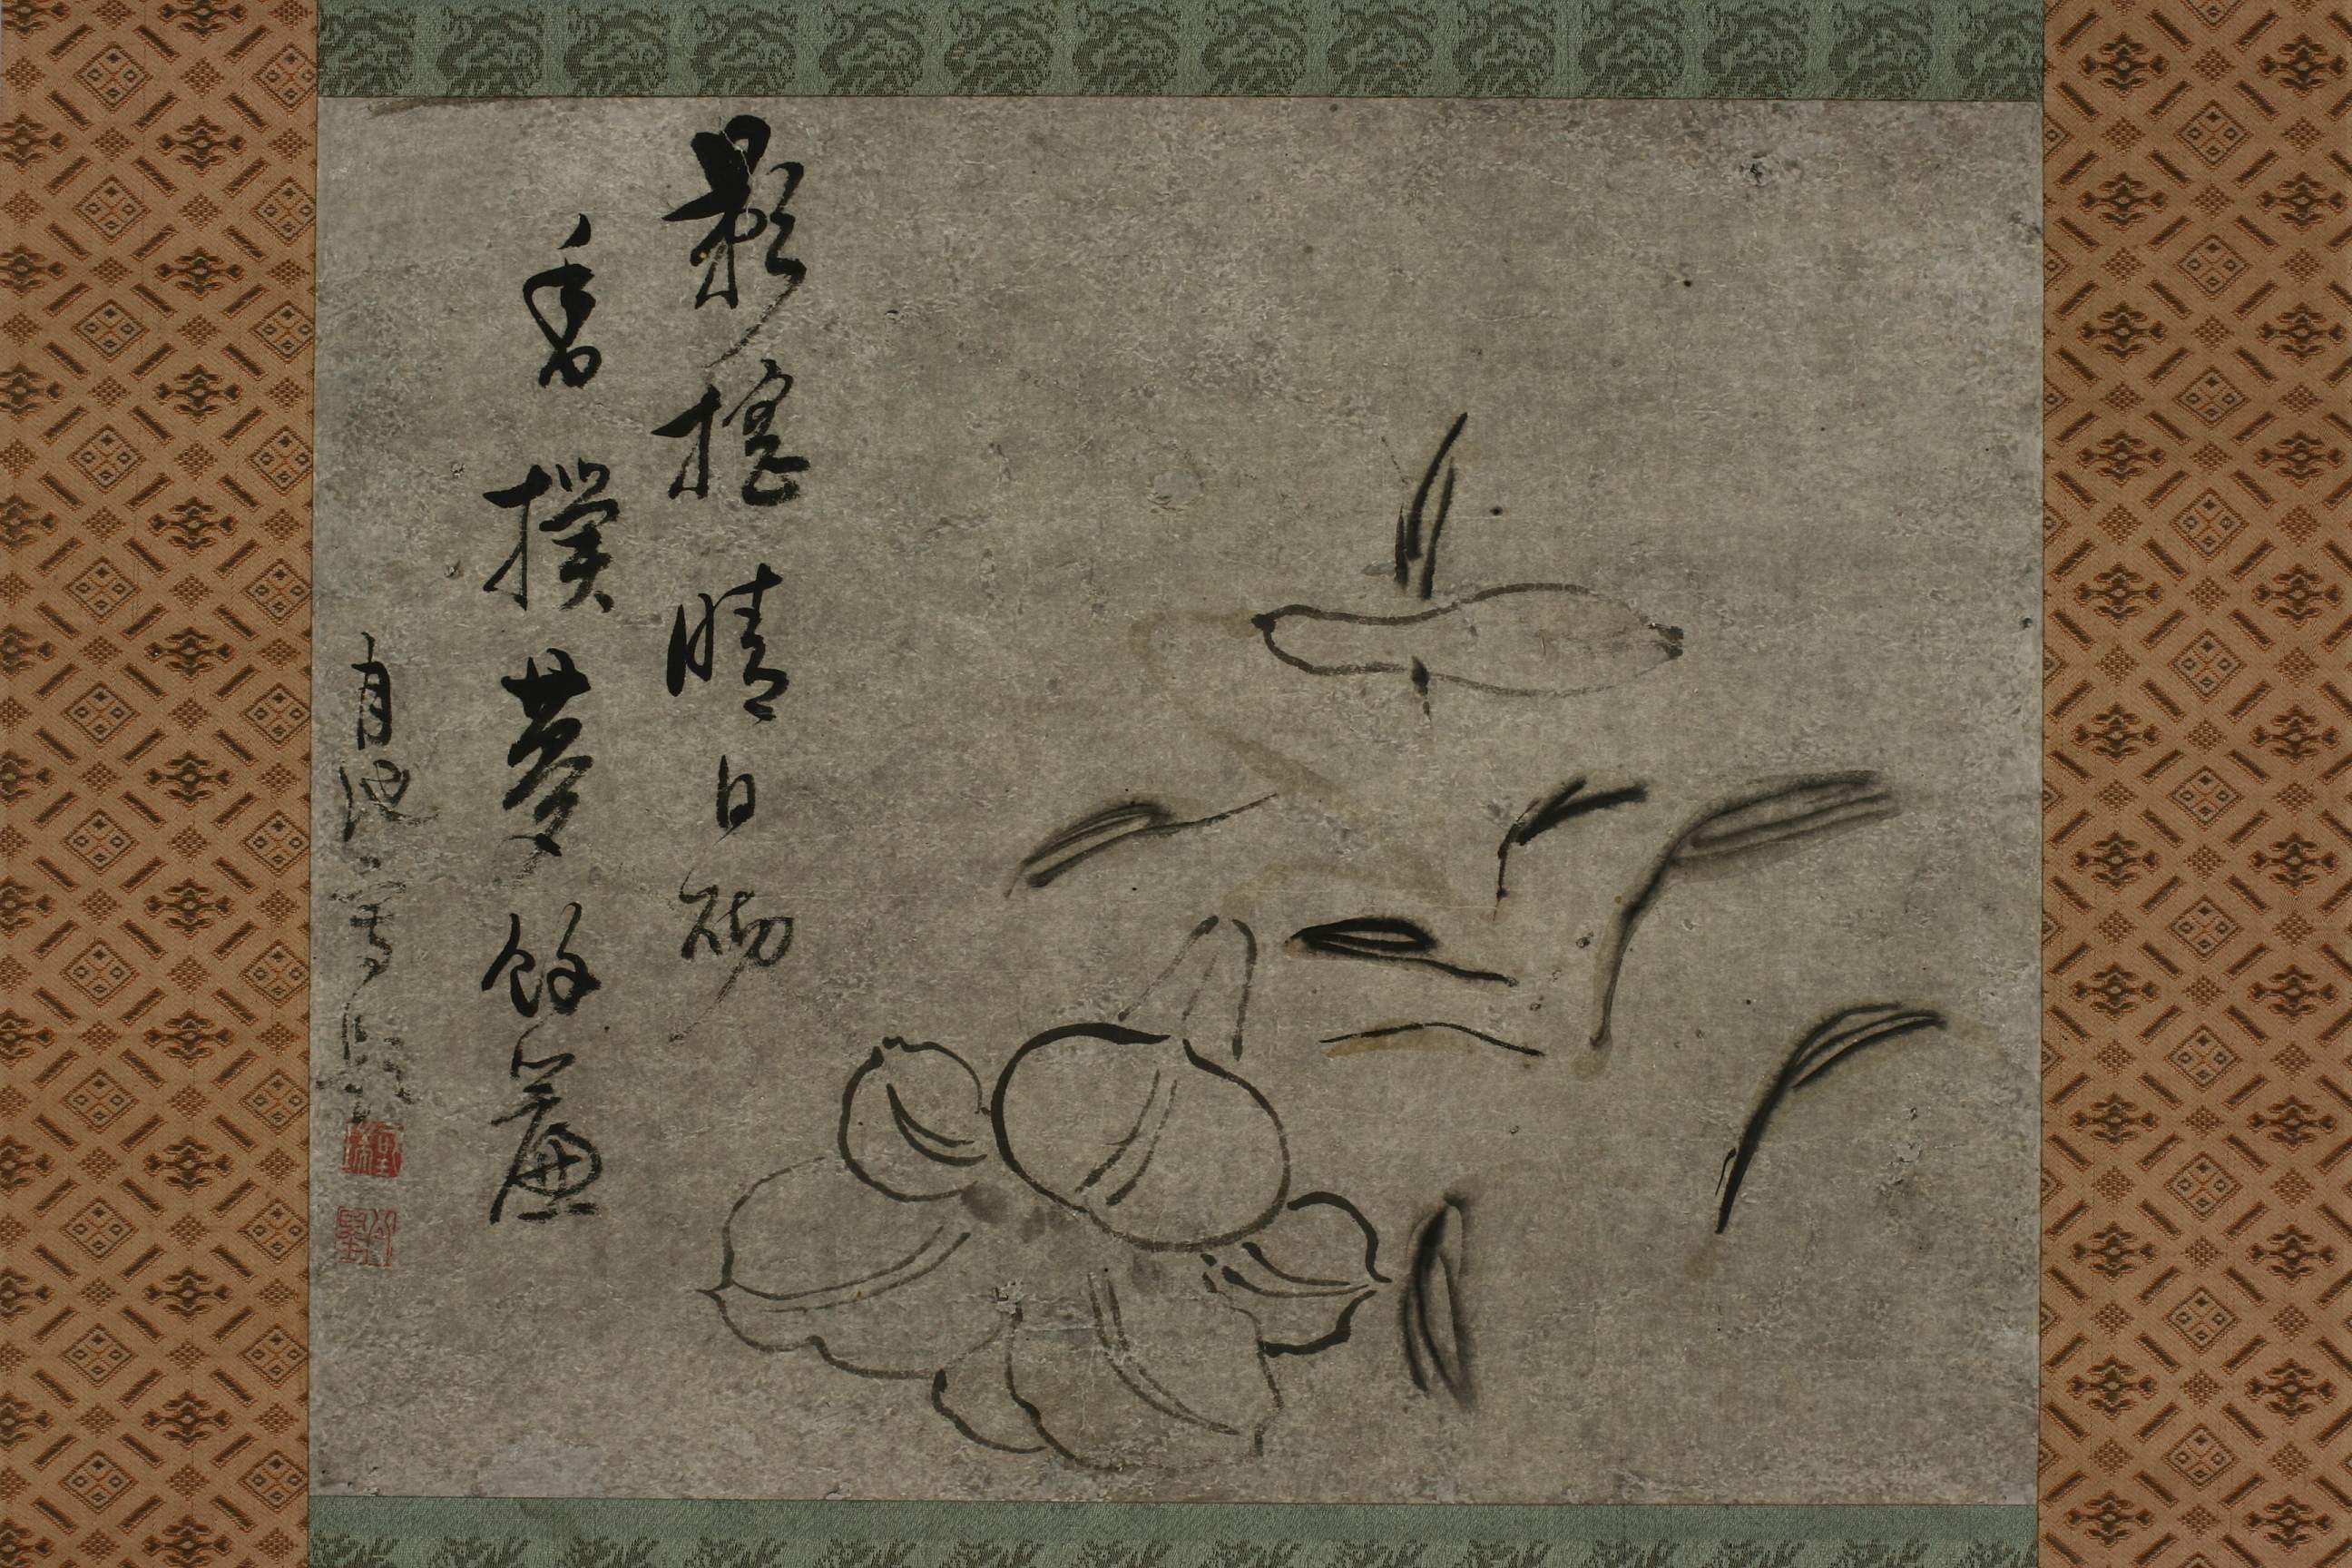 影搖晴日砌
香撲夢餘簾
池寫